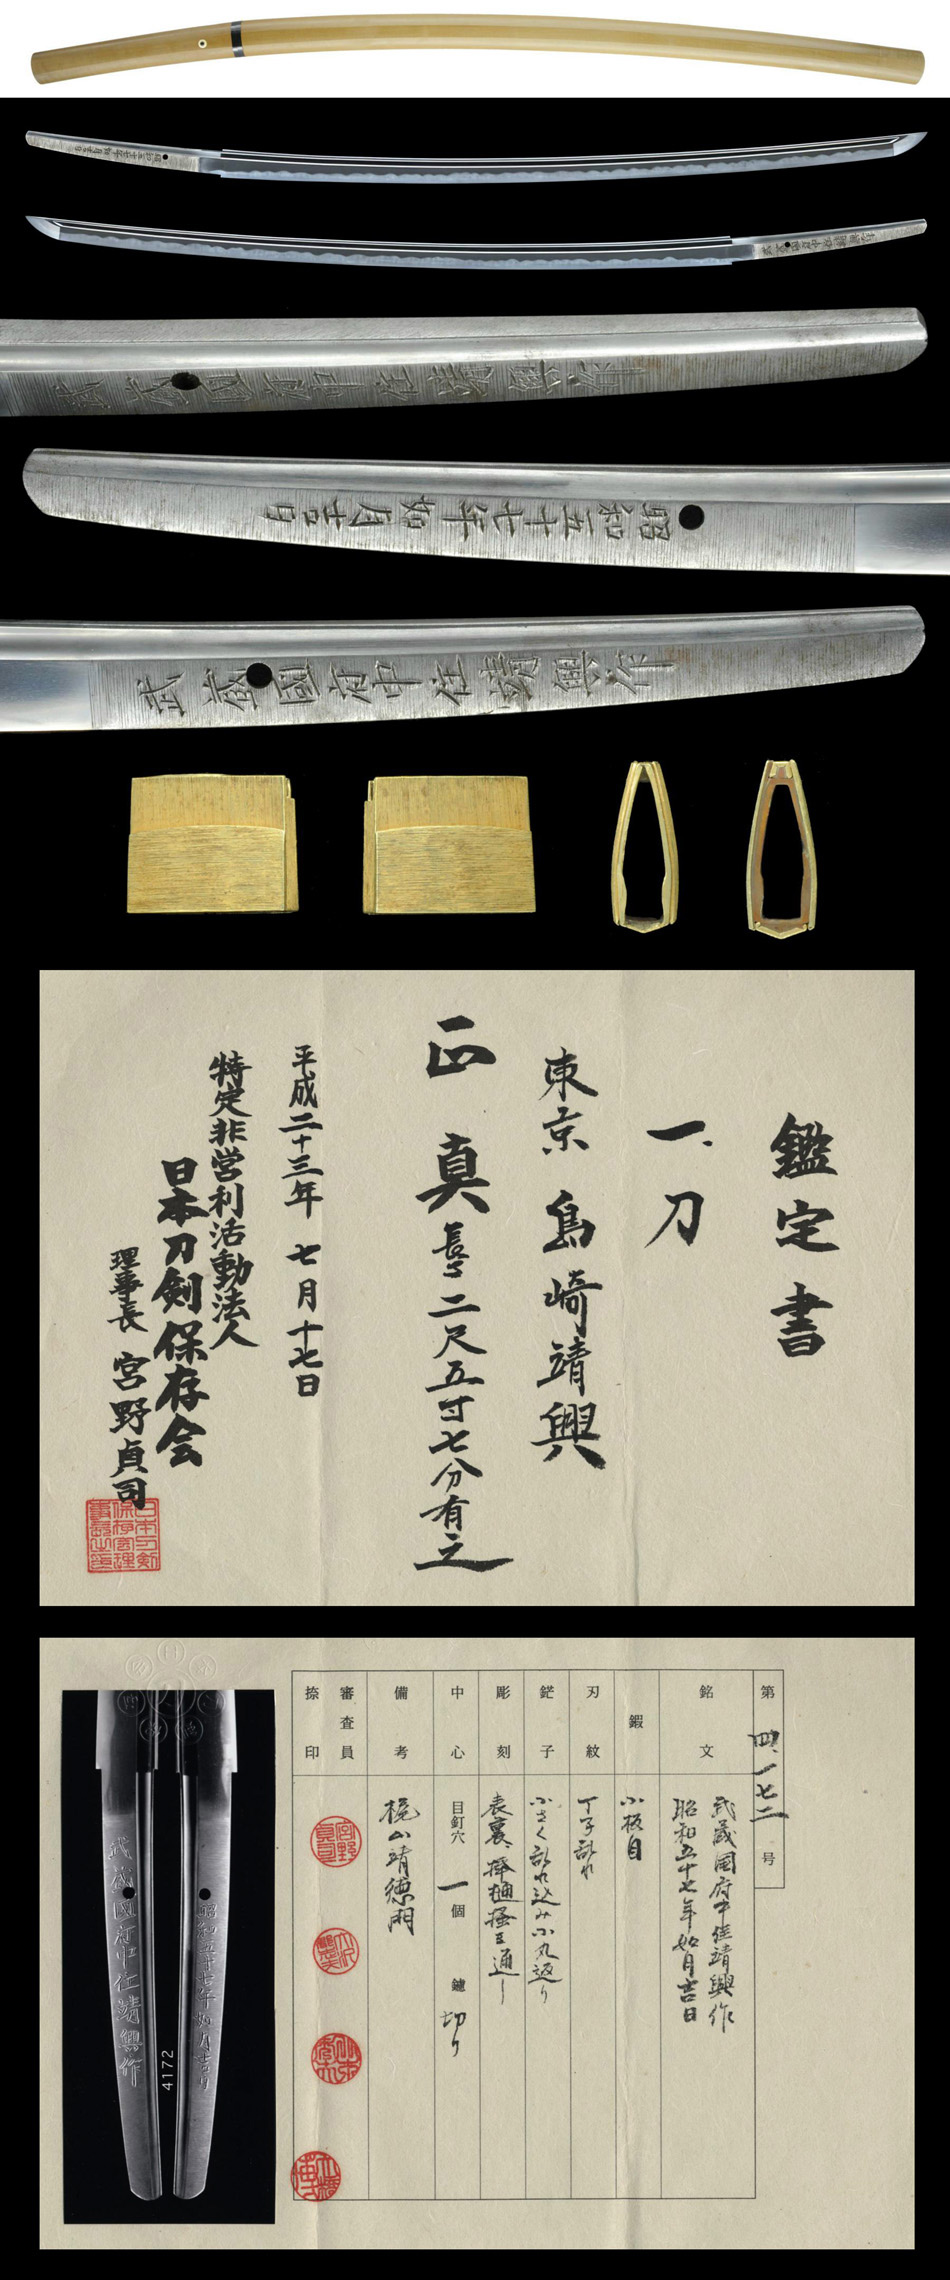 武蔵國府中住靖興作
昭和五十七年如月吉日
武蔵國府中住靖興作
鑑定書
一、刀
東京 島崎靖興
正真 長さ二尺五寸七分有之
平成二十三年 七月十七日
特定非営利活動法人
日本刀剣保存会
理事長 宮野貞司
第四、一七二号
銘文
武蔵国府中住靖興作
昭和五十七年如月吉日
鍜
小板目
刃紋
丁子乱れ
鋩子
小さく乱れ込み小丸返り
彫刻
表裏、棒樋掻き通し
中心
目釘穴 一個 鑢 切り
備考
梶山靖徳門
審査員
捺印
4172